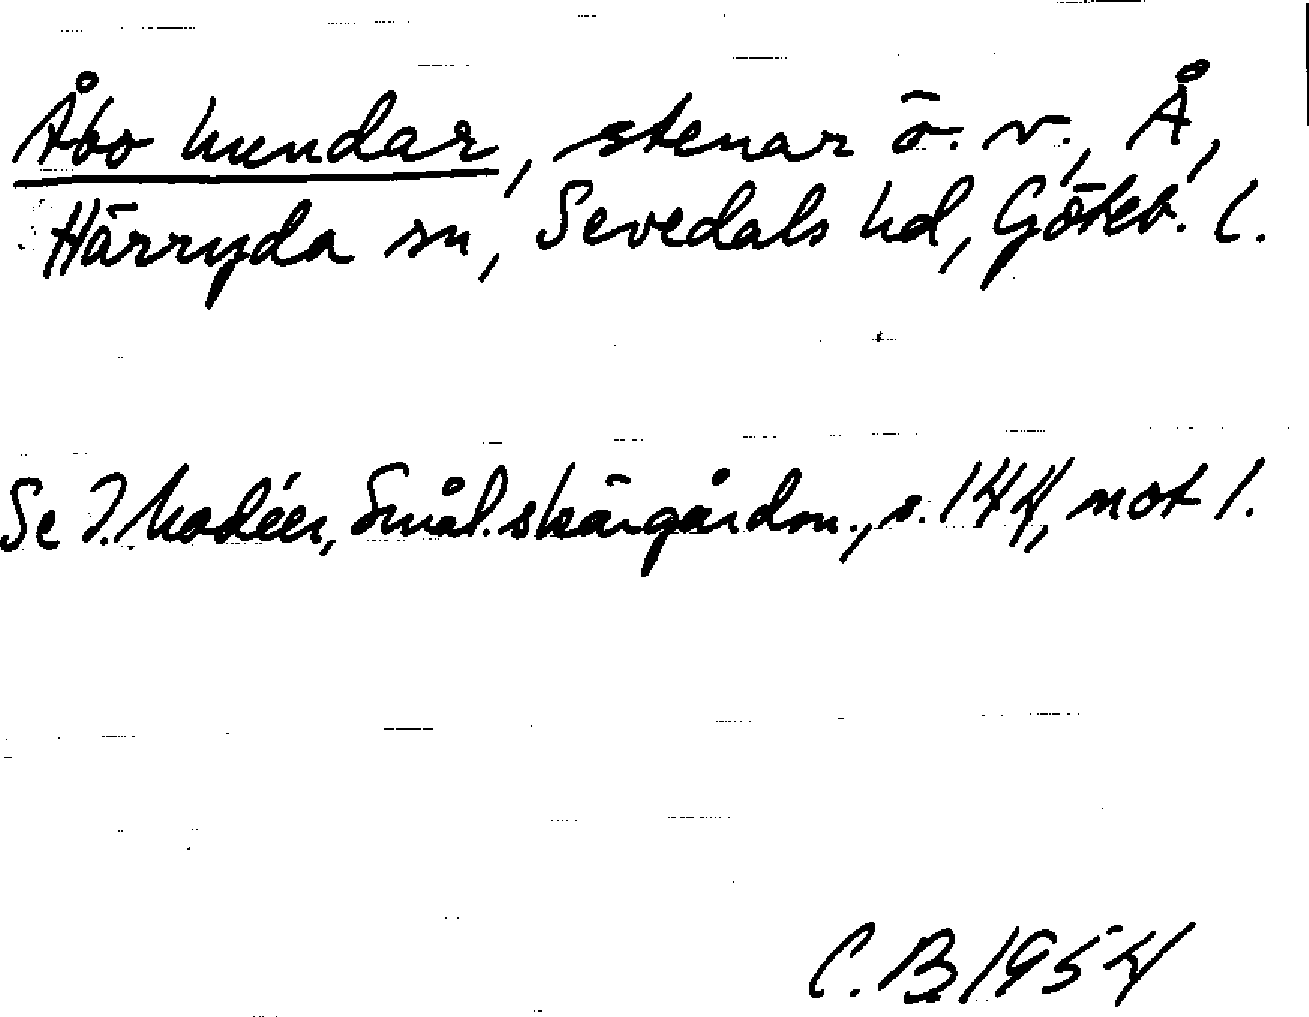 Åbo hundar, stenar ö. v., Å,
Härryda sn, Sevedals hd, Göteb. l.
Se I. Modéer, Smål. skärgårdsn., s. 144, not 1.
C. B 1954